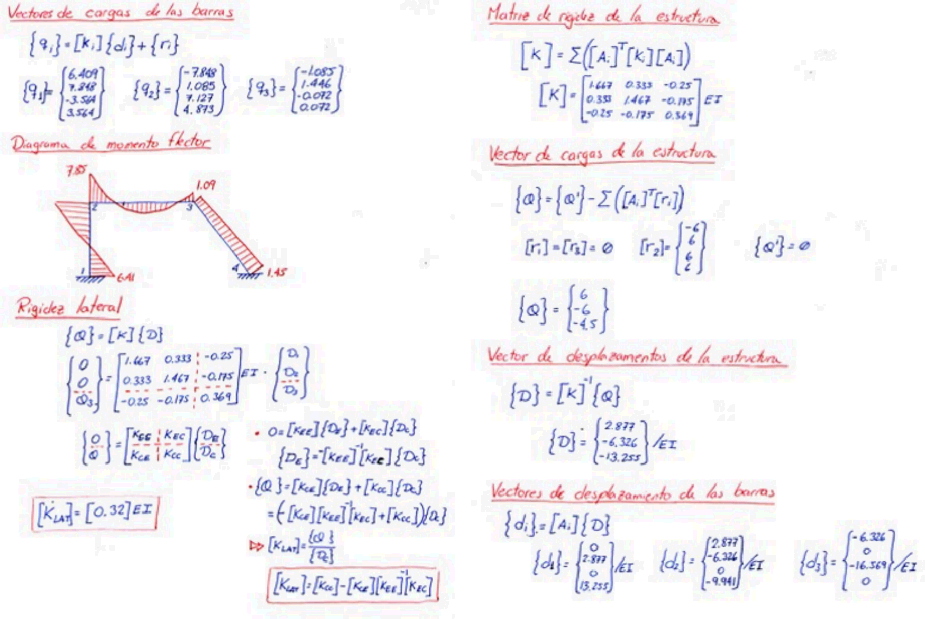 Vectores de cargas de las barras
{qi}=[ki]{di}+{ri}
{q1}={6.409 7.848 -3.564 3.564} {q2}={-7.848 1.085 7.127 4.873} {q3}={-1.085 1.446 -0.072 0.072}
Diagrama de momento flector
7.85
1.09
2 3
1 6.41 4 1.45
Rigidez lateral
{Q}=[K]{D}
{0 0 Q3}=[1.667 0.333 -0.25
0.333 1.467 -0.175
-0.25 -0.175 0.369]EI · {D1 D2 D3}
{0 Q}=[KEE KEC
KCE KCC]{DE DC}
• 0=[KEE]{DE}+[KEC]{DC}
{DE}=-[KEE]⁻¹[KEC]{DC}
• {Q}=[KCE]{DE}+[KCC]{DC}
=(-[KCE][KEE]⁻¹[KEC]+[KCC]){DC}
▷▷ [KLAT]={Q}/{DC}
[KLAT]=[KCC]-[KCE][KEE]⁻¹[KEC]
[KLAT]=[0.32]EI
Matriz de rigidez de la estructura
[K]=Σ([Ai]ᵀ[Ki][Ai])
[K]=[1.667 0.333 -0.25
0.333 1.467 -0.175
-0.25 -0.175 0.369]EI
Vector de cargas de la estructura
{Q}={Q'}-Σ([Ai]ᵀ[ri])
[r1]=[r3]=Ø [r2]={-6 6 6 6} {Q'}=Ø
{Q}={6 -6 -4.5}
Vector de desplazamentos de la estructura
{D}=[K]⁻¹{Q}
{D}={2.877 -6.326 -13.255}/EI
Vectores de desplazamiento de las barras
{di}=[Ai]{D}
{d1}={0 2.877 0 13.255}/EI {d2}={2.877 -6.326 0 -9.941}/EI {d3}={-6.326 0 -16.569 0}/EI